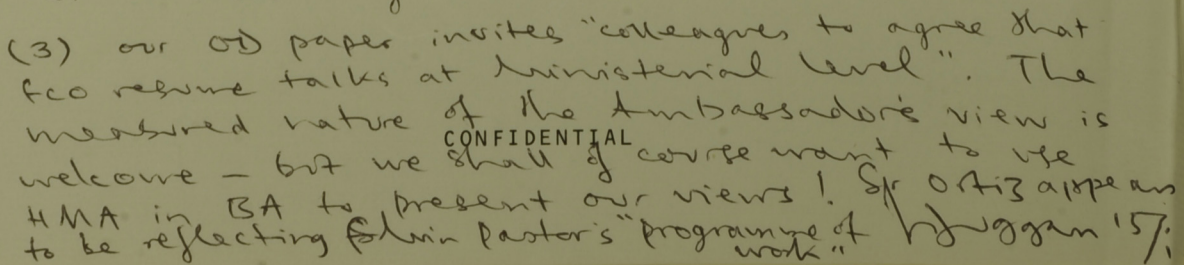 (3) our OD paper invites "colleagues to agree that
FCO resume talks at Ministerial level". The
measured nature of the Ambassador's view is
CONFIDENTIAL
welcome – but we shall of course want to use
HMA in BA to present our views! Sr Ortiz appears
to be reflecting Pastor's "programme of
work"